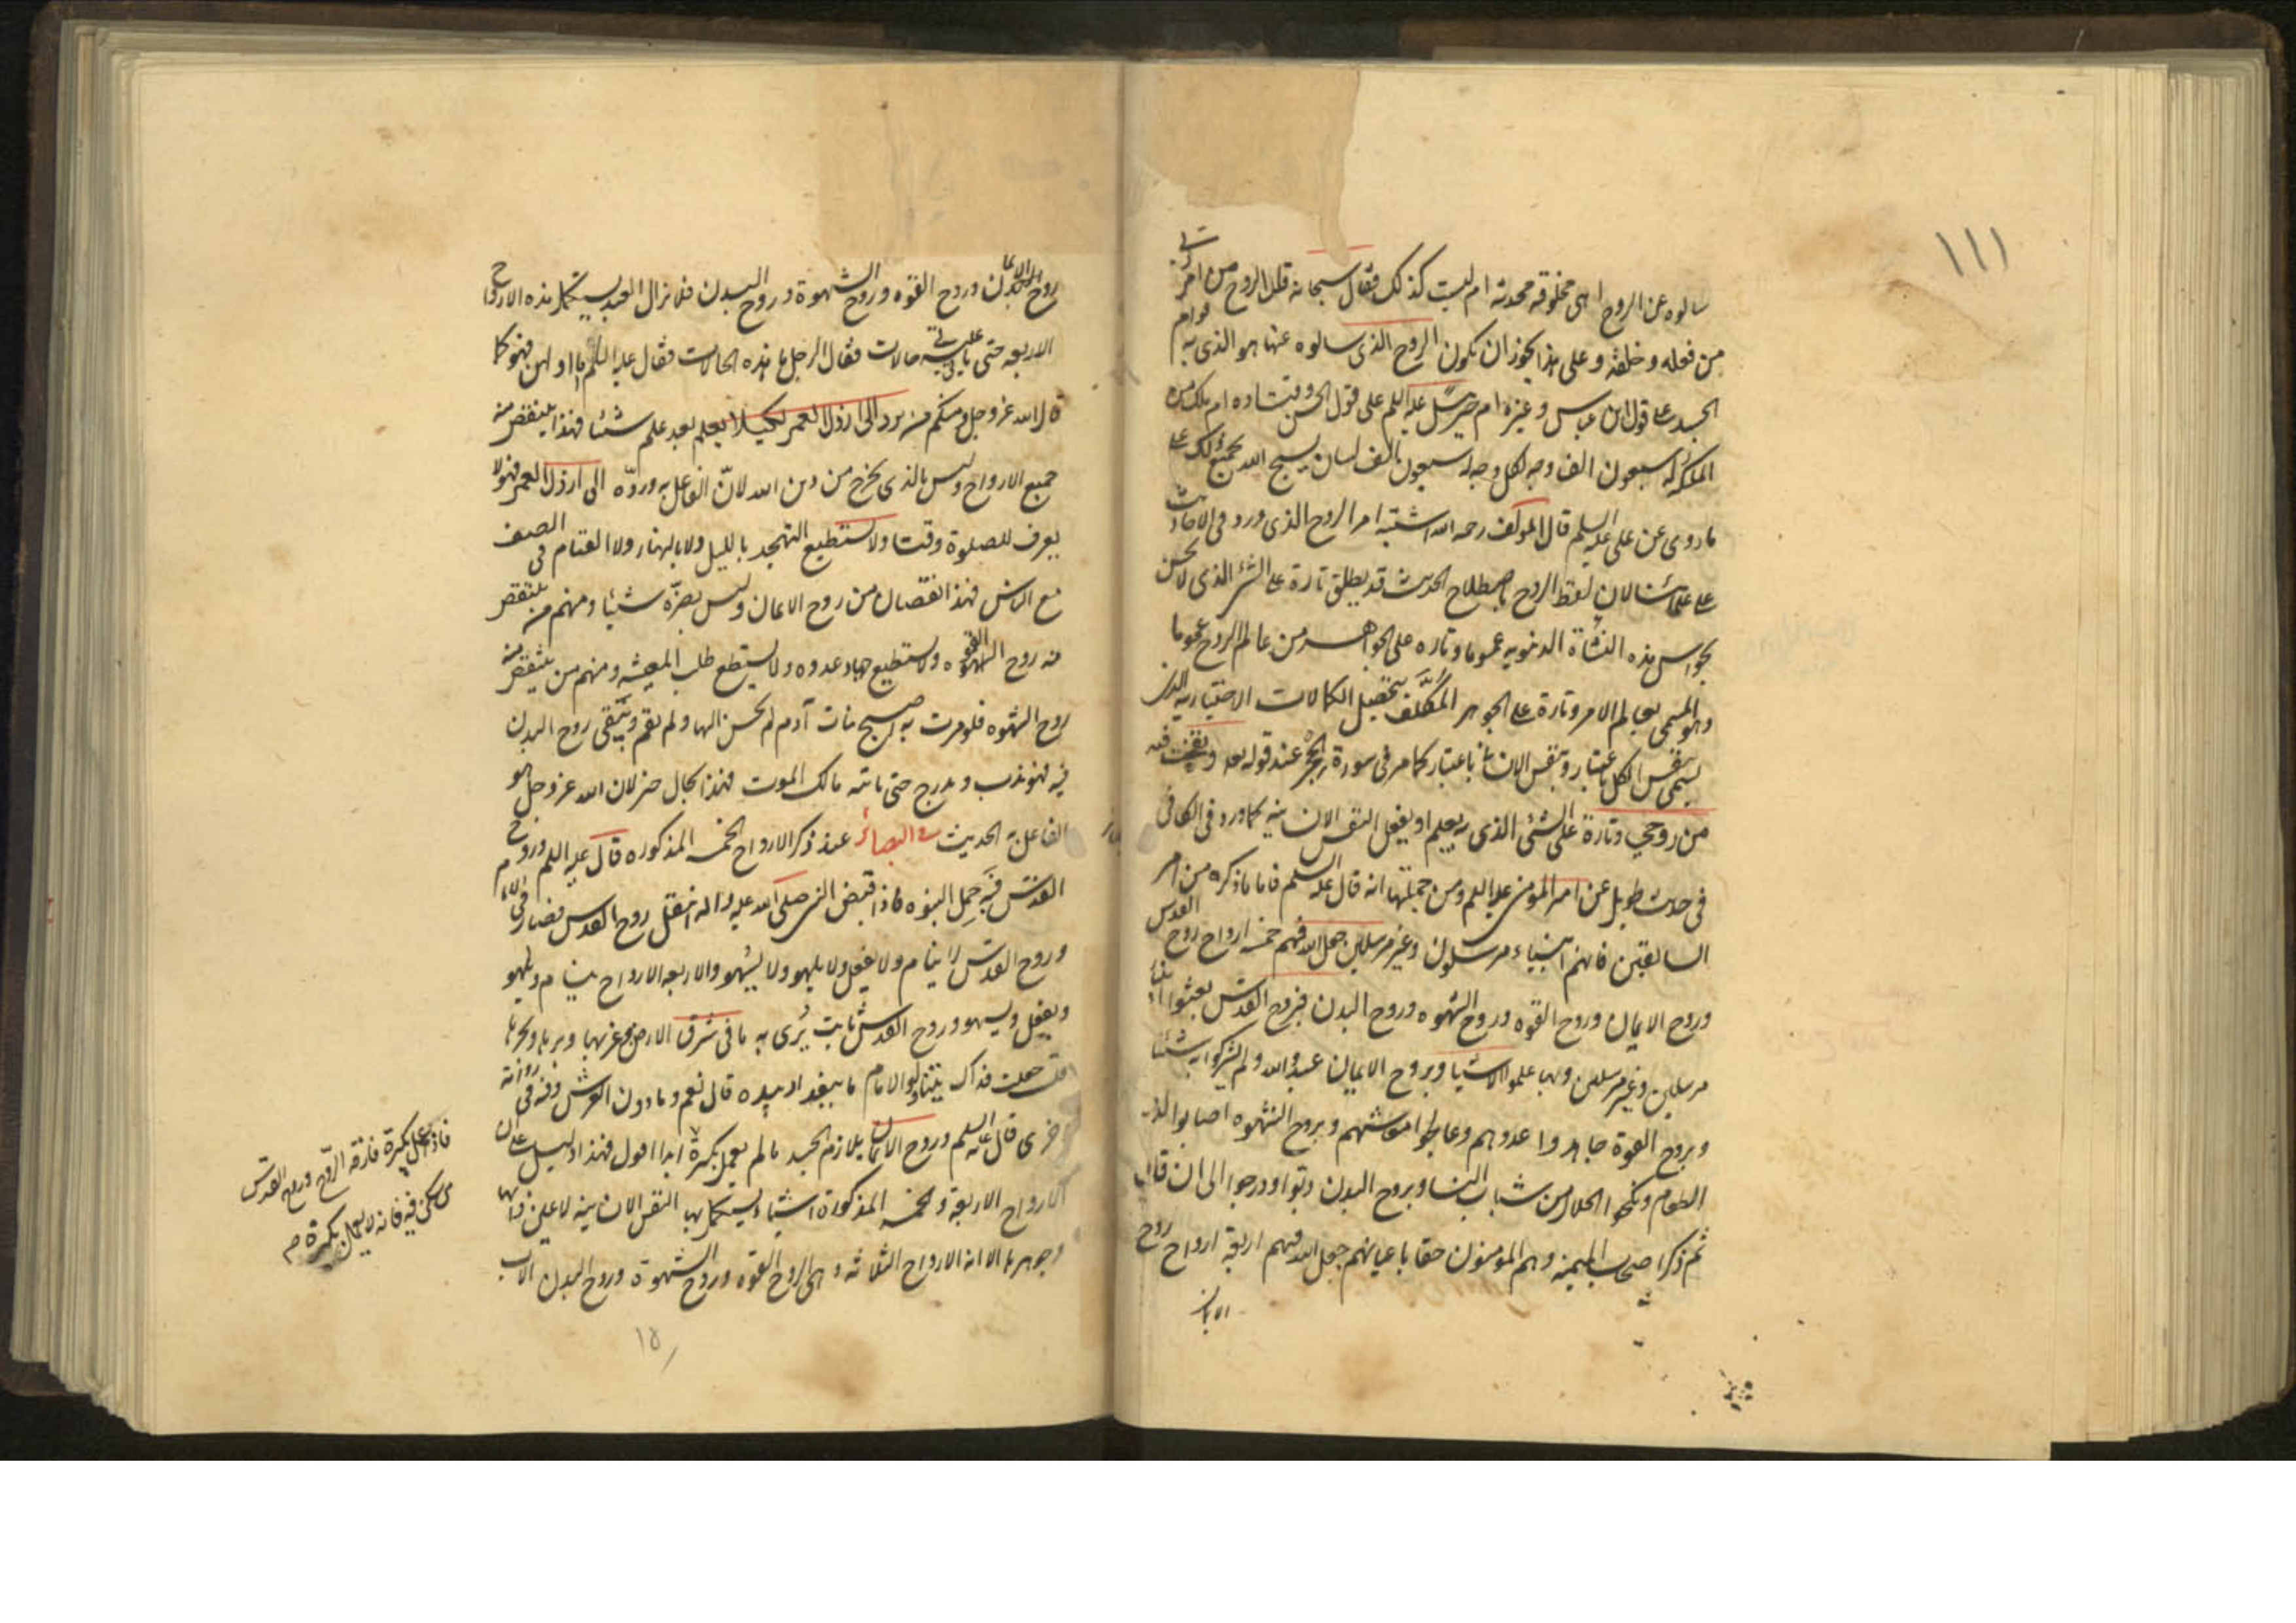 ١١١
سالوه عن الروح اهى مخلوقه محدثه ام ليست كذلك فقال سبحانه قل الروح من امر ربى
من فعله وخلقه وعلى هذا يجوز ان يكون الروح الذى سالوه عنها هو الذى به قوام
الجسد على قول ابن عباس وغيره ام جبرئيل عليه السلم على قول الحسن وقتاده ام ملك من
الملئكه له سبعون الف وجه لكل وجه سبعون الف لسان يسبح الله بجميع ذلك على
ما روى عن على عليه السلم قال المولف رحمه الله اشتبه امر الروح الذى ورد فى الاحاديث
على علمائنا لان لفظ الروح باصطلاح الحديث قد يطلق تارة على الشئ الذى لا يحس
بحواس هذه النشاة الدنيويه عموما وتاره على الجواهر من عالم الروح عموما
وهو المسمى بعالم الامر وتارة على الجوهر المكلف بتحصيل الكمالات الاختياريه الذى
يسمى بنفس الكل باعتبار وبنفس الانسان باعتبار كما مر فى سورة الحجر عند قوله تعه ونفخت فيه
من روحي وتارة على الشئى الذى به يعلم او يفعل النفس الانسانيه كما ورد فى الكافى
فى حديث طويل عن امير المومنين عليه السلم ومن جملتها انه قال عليه السلم فاما ما ذكره من امر
السابقين فانهم انبياء مرسلون وغير مرسلين جعل الله فيهم خمسه ارواح روح القدس
وروح الايمان وروح القوه وروح الشهوه وروح البدن فبروح القدس بعثوا انبياء
مرسلين وغير مرسلين وبها علموا الاشيا وبروح الايمان عبدوا الله ولم يشركوا به شيئا
وبروح القوة جاهدوا عدوهم وعالجوا معاشهم وبروح الشهوه اصابوا لذيذ
الطعام ونكحوا الحلال من شباب النسا وبروح البدن دبوا ودرجوا الى ان قال
ثم ذكر اصحاب الميمنه وهم المومنون حقا باعيانهم جعل الله فيهم اربعة ارواح روح
الايمان
روح الايمان وروح القوه وروح الشهوة وروح البدن فلا يزال العبد يستكمل هذه الارواح
الاربعه حتى ياتى عليه حالات فقال الرجل ما هذه الحالات فقال عليه السلم اما اولهن فهو كما
قال الله عز وجل ومنكم من يرد الى ارذل العمر لكيلا يعلم بعد علم شيئا فهذا ينتقص منه
جميع الارواح وليس بالذى يخرج من دين الله لانّ الفاعل به وردّه الى ارذل العمر فهو لا
يعرف للصلوة وقتا ولا يستطيع التهجد بالليل ولا بالنهار ولا القيام فى الصف
مع الناس فهذا نقصان من روح الايمان وليس يضرّه شيئا ومنهم من ينتقص
منه روح القوه ولا يستطيع جهاد عدوه ولا يستطيع طلب المعيشه ومنهم من ينتقص منه
روح الشهوه فلو مرت به اصبح بنات آدم لم يحن اليها ولم يقم ويبقى روح البدن
فيه فهو يدب ويدرج حتى ياتيه ملك الموت فهذا بحال خير لان الله عز وجل هو
الفاعل به الحديث فى البصائر عند ذكر الارواح الخمسه المذكوره قال عليه السلم وروح
القدس فبه حمل النبوه فاذا قبض النبى صلى الله عليه واله انتقل روح القدس فصار فى الامام
وروح القدس لا ينام ولا يغفل ولا يلهو ولا يسهو والاربعه الارواح ينام ويلهو
ويغفل ويسهو وروح القدس ثابت يُرى به ما فى شرق الارض وغربها وبرها وبحرها
قلت جعلت فداك يتناول الامام ما ببغداد بيده قال نعم وما دون العرش وفى روايه
اخرى قال عليه السلم وروح الايمان يلازم الجسد ما لم يعمل بكبيرة ابدا اقول فهذا دليل على ان
الارواح الاربعة والخمسه المذكورة اشياء يستكمل بها النفس الانسانيه لا عين ذاتها
وجوهرها الا ان الارواح الثلاثه وهى الروح القوه وروح الشهوة وروح البدن
فاذا عمل بكبيرة فارقه الروح وروح القدس
من سكن فيه فانه لا يعمل بكبيرة م
١٥